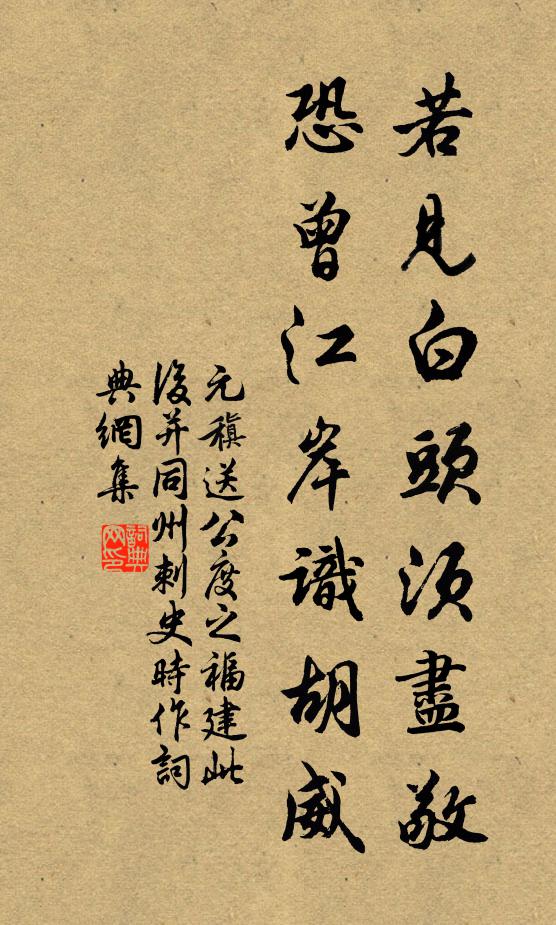 若見白頭須盡敬
恐曾江岸識胡威
元稹送公度之福建此
後并同州刺史時作詞
典網集
詞典
网印